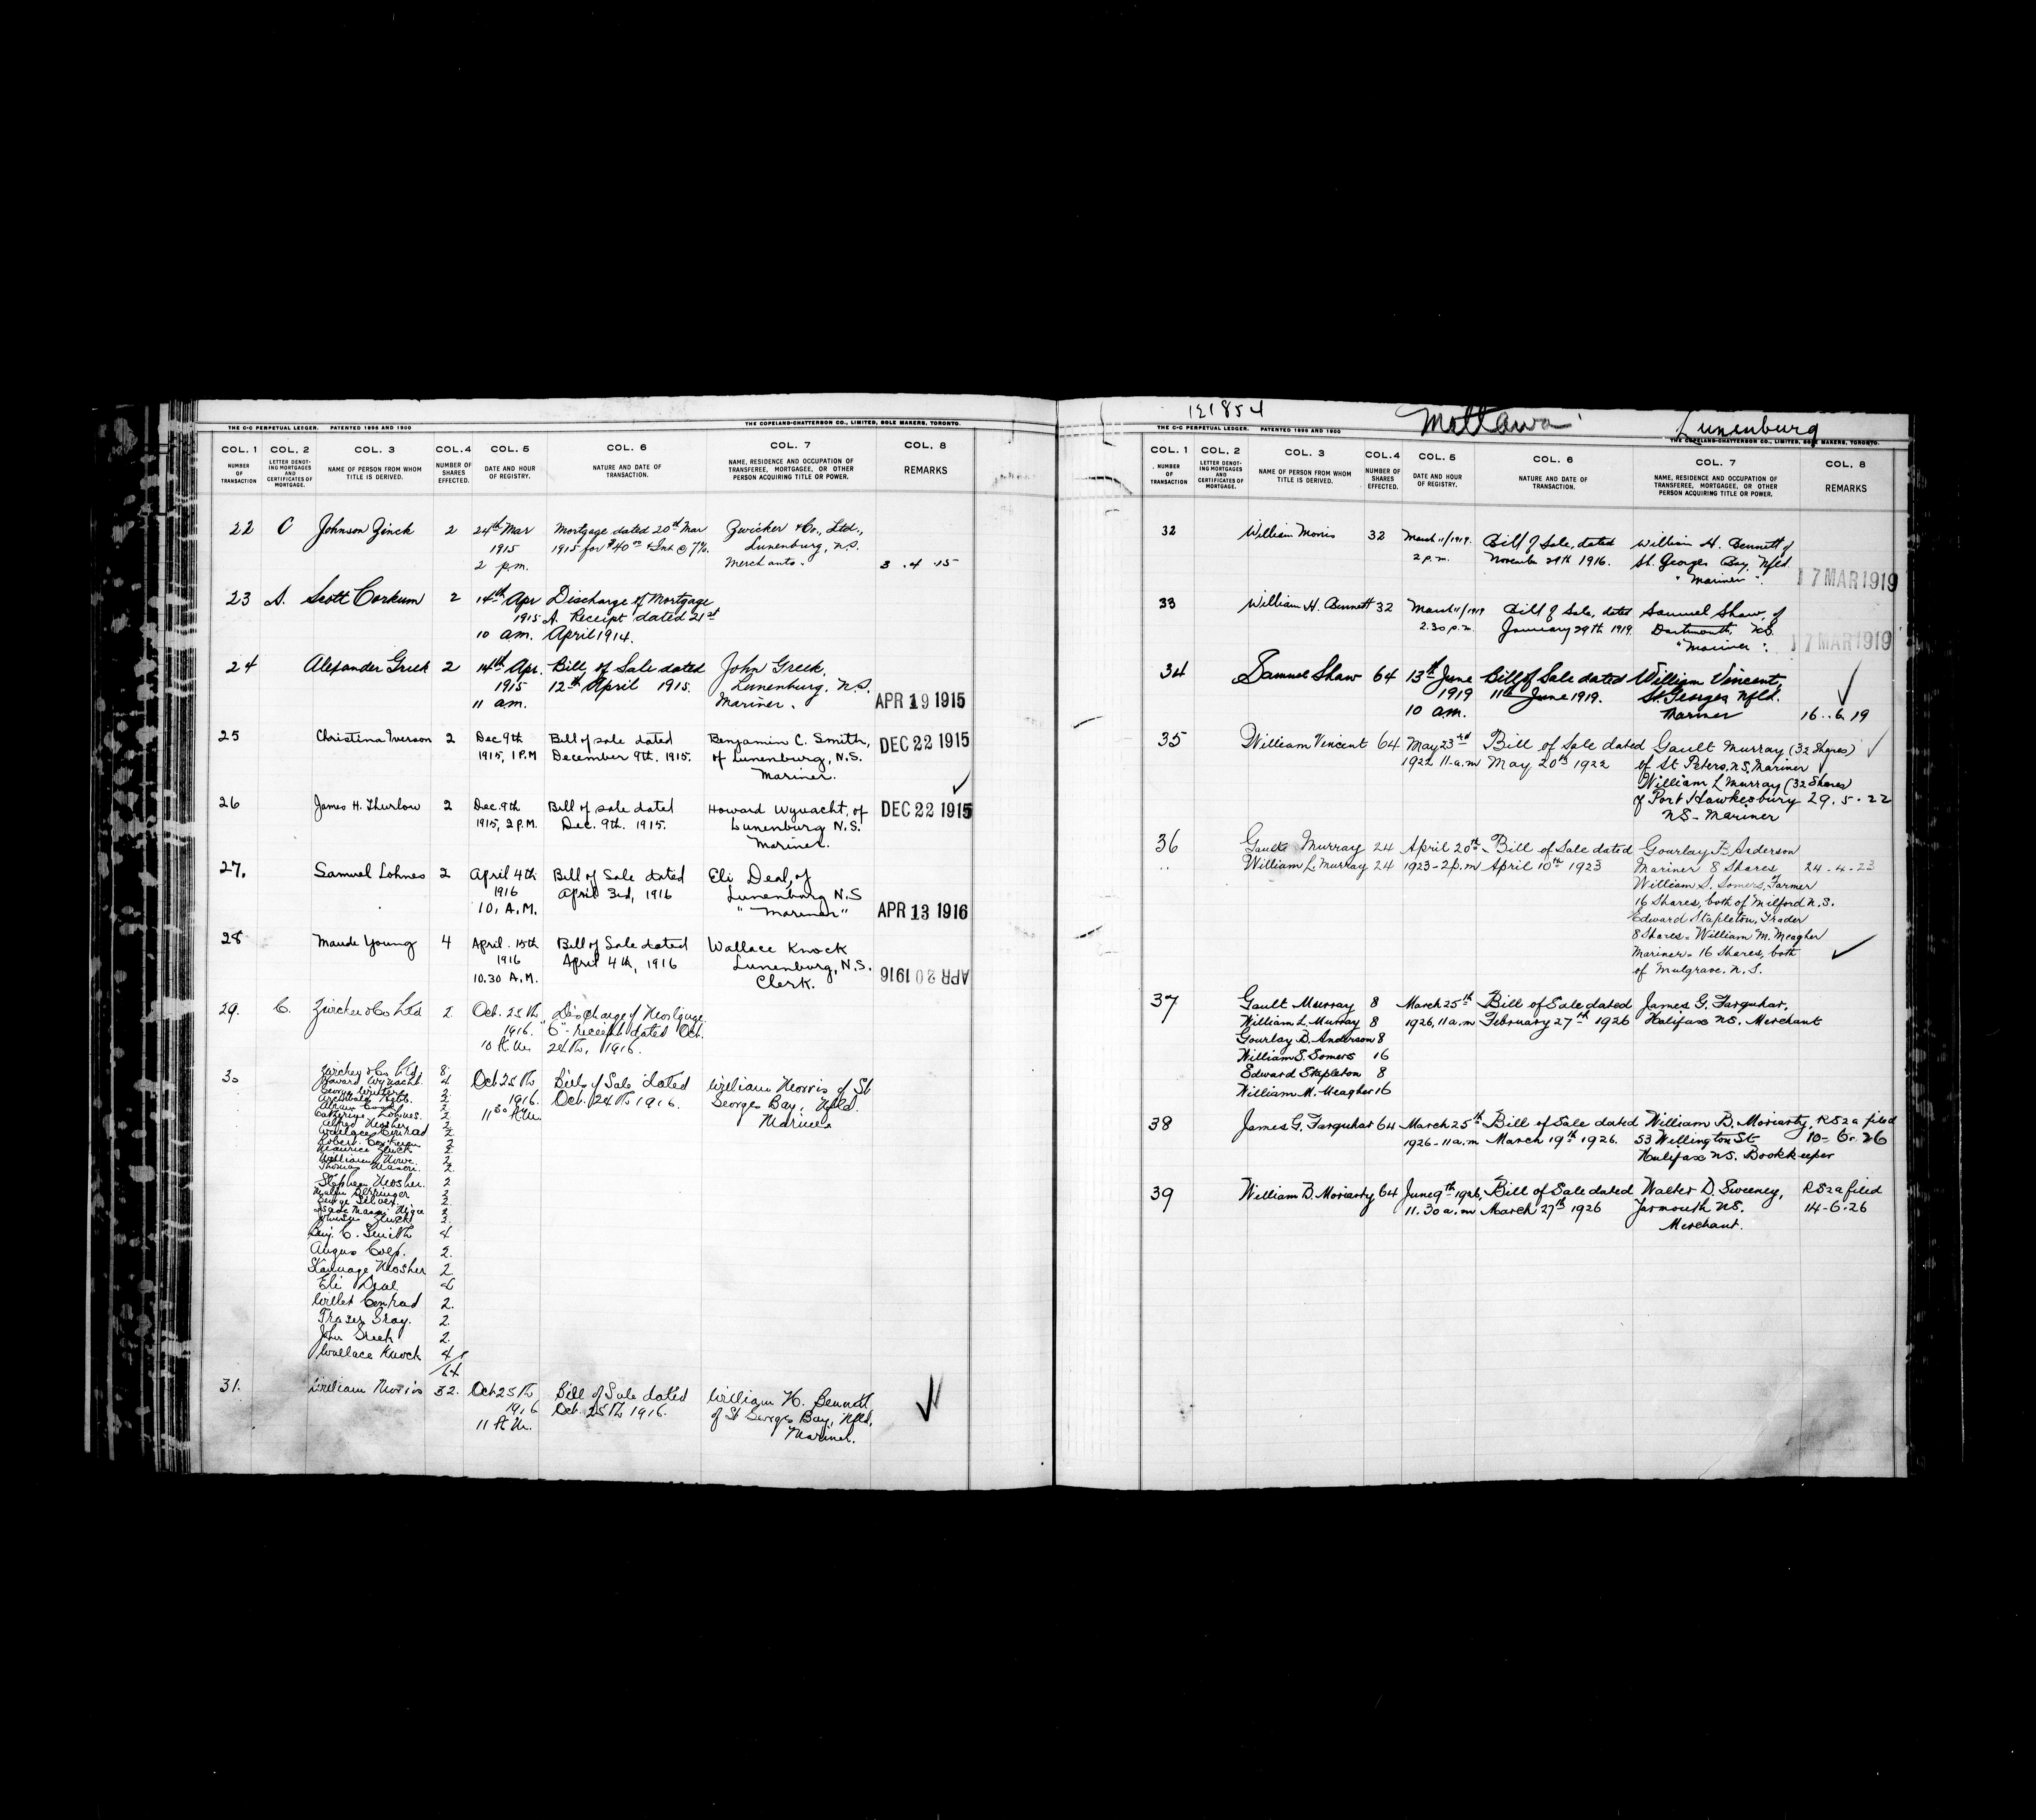 THE C-C PERPETUAL LEDGER. PATENTED 1896 AND 1900 THE COPELAND-CHATTERSON CO., LIMITED, SOLE MAKERS, TORONTO.
COL. 1 COL. 2 COL. 3 COL. 4 COL. 5 COL. 6 COL. 7 COL. 8
NUMBER OF TRANSACTION
LETTER DENOTING MORTGAGES AND CERTIFICATES OF MORTGAGE.
NAME OF PERSON FROM WHOM TITLE IS DERIVED.
NUMBER OF SHARES EFFECTED.
DATE AND HOUR OF REGISTRY.
NATURE AND DATE OF TRANSACTION.
NAME, RESIDENCE AND OCCUPATION OF TRANSFEREE, MORTGAGEE, OR OTHER PERSON ACQUIRING TITLE OR POWER.
REMARKS
22 C Johnson Zinck 2 24th Mar Mortgage dated 20th Mar Zwicker & Co., Ltd.,
1915 1915 for $40 & Int @ 7% Lunenburg, N.S.
2 p.m. Merchants. 3 .4 .15
23 A. Scott Corkum 2 14th Apr Discharge of Mortgage
1915 A. Receipt dated 21st
10 am. April 1914.
24 Alexander Greek 2 14th Apr. Bill of Sale dated John Greek,
1915 12th April 1915. Lunenburg, N.S.
11 am. Mariner. APR 19 1915
25 Christina Iverson 2 Dec 9th Bill of sale dated Benjamin C. Smith, DEC 22 1915
1915, 1 P.M December 9th. 1915. of Lunenburg, N.S.
Mariner.
26 James H. Thurlow 2 Dec. 9th Bill of sale dated Howard Wynacht, of DEC 22 1915
1915, 2 P.M. Dec. 9th. 1915. Lunenburg N.S.
Mariner.
27. Samuel Lohnes 2 April 4th Bill of Sale dated Eli Deal, of
1916 April 3rd, 1916 Lunenburg N.S
10, A.M. "Mariner" APR 13 1916
28 Maude Young 4 April. 15th Bill of Sale dated Wallace Knock
1916 April 4th, 1916 Lunenburg, N.S.
10.30 A.M. Clerk. APR 20 1916
29. C. Zwicker & Co Ltd 2 Oct. 25th Discharge of Mortgage
1916. "C" receipt dated Oct.
10 A.M. 24th, 1916.
30 Zwicker & Co Ltd 8 Oct 25th Bill of Sale dated William Morris of St
Howard Wynacht. 4 1916. Oct. 24th 1916. Georges Bay, Nfld.
11 30 A.M. Mariner
2
2
2
Catherine Lohnes. 2
Alfred Mosher 2
Wallace Conrad 2
Robert Corkum 2
Maurice Zinck 2
2
2
Stephen Mosher. 2
2
George Silver. 2
2
Johnson Zinck 2
Benj. C. Smith 4
Angus Corp. 2.
Mosher 2
Eli Deal 4
Willet Conrad 2.
Frazer Gray. 2.
John Greek 2.
Wallace Knock 4
64
31. William Morris 32. Oct 25th Bill of Sale dated William H. Bennett,
1916 Oct. 25th 1916. of St Georges Bay, Nfld,
11 A.M. Mariner.
121854 Mattawa Lunenburg
THE C-C PERPETUAL LEDGER. PATENTED 1896 AND 1900 THE COPELAND-CHATTERSON CO., LIMITED, SOLE MAKERS, TORONTO.
COL. 1 COL. 2 COL. 3 COL. 4 COL. 5 COL. 6 COL. 7 COL. 8
NUMBER OF TRANSACTION
LETTER DENOTING MORTGAGES AND CERTIFICATES OF MORTGAGE.
NAME OF PERSON FROM WHOM TITLE IS DERIVED.
NUMBER OF SHARES EFFECTED.
DATE AND HOUR OF REGISTRY.
NATURE AND DATE OF TRANSACTION.
NAME, RESIDENCE AND OCCUPATION OF TRANSFEREE, MORTGAGEE, OR OTHER PERSON ACQUIRING TITLE OR POWER.
REMARKS
32 William Morris 32 March 11/1919. Bill of Sale, dated William H. Bennett of
2 p.m. November 29th 1916. St. Georges Bay, Nfld.
"Mariner". 17 MAR 1919
33 William H. Bennett 32 March 11/1919 Bill of Sale, dated Samuel Shaw, of
2.30 p.m. January 29th 1919. Dartmouth, N.S.
"Mariner". 17 MAR 1919
34 Samuel Shaw 64 13th June Bill of Sale dated William Vincent,
1919 11th June 1919. St. Georges Nfld.
10 am. Mariner 16..6.19
35 William Vincent 64 May 23rd Bill of Sale dated Gault Murray (32 Shares)
1922 11-a.m May 20th 1922 of St Peters, N.S, Mariner
William L Murray (32 Shares)
of Port Hawkesbury 29.5.22
NS- Mariner
36 Gault Murray 24 April 20th Bill of Sale dated Gourlay B Anderson
.. William L. Murray 24 1923-2p.m April 10th 1923 Mariner 8 Shares 24-4-23
William S. Somers, Farmer
16 Shares, both of Milford N.S.
Edward Stapleton, Trader
8 Shares- William M. Meagher
Mariner- 16 Shares, both
of Mulgrave. N.S.
37 Gault Murray 8 March 25th Bill of Sale dated James G. Farquhar,
William L. Murray 8 1926, 11 a.m February 27th 1926 Halifax NS. Merchant
Gourlay B. Anderson 8
William S. Somers 16
Edward Stapleton 8
William M. Meagher 16
38 James G. Farquhar 64 March 25th Bill of Sale dated William B. Moriarty, R52a filed
1926-11 a.m March 19th 1926. 53 Wellington St- 10-6-26
Halifax NS. Bookkeeper
39 William B. Moriarty 64 June 9th 1926, Bill of Sale dated Walter D. Sweeney, R52a filed
11.30 a.m March 27th 1926 Yarmouth NS. 14-6-26
Merchant.